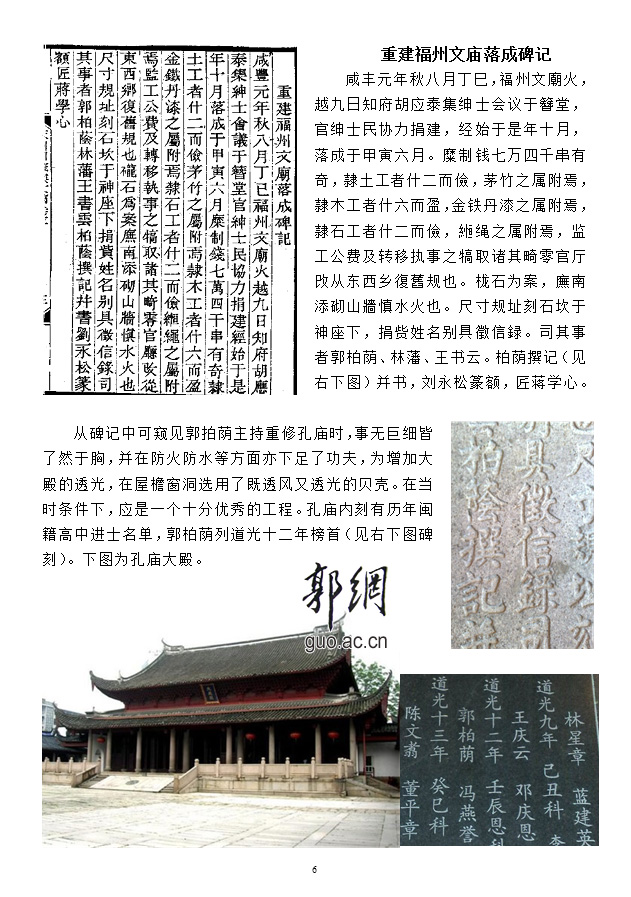 重建福州文廟落成碑記
咸豐元年秋八月丁巳福州文廟火越九日知府胡應
泰集紳士會議于簪堂官紳士民協力捐建經始于是
年十月落成于甲寅六月糜制錢七萬四千串有奇隸
土工者什二而儉茅竹之屬附焉隸木工者什六而盈
金鐵丹漆之屬附焉隸石工者什二而儉緪繩之屬附
焉監工公費及轉移執事之犒取諸其畸零官廳改從
東西鄉復舊規也礲石為案廡南添砌山牆慎水火也
尺寸規址刻石坎于神座下捐貲姓名別具徵信錄司
其事者郭柏蔭林藩王書雲柏蔭撰記幷書劉永松篆
額匠蔣學心
重建福州文庙落成碑记
咸丰元年秋八月丁巳，福州文廟火，
越九日知府胡应泰集绅士会议于簪堂，
官绅士民协力捐建，经始于是年十月，
落成于甲寅六月。糜制钱七万四千串有
奇，隸土工者什二而儉，茅竹之属附焉，
隸木工者什六而盈，金铁丹漆之属附焉，
隸石工者什二而儉，緪绳之属附焉，监
工公费及转移执事之犒取诸其畸零官厅
改从东西乡復舊规也。栊石为案，廡南
添砌山牆慎水火也。尺寸规址刻石坎于
神座下，捐赀姓名别具徵信録。司其事
者郭柏荫、林藩、王书云。柏荫撰记（见
右下图）并书，刘永松篆额，匠蒋学心。
从碑记中可窥见郭拍荫主持重修孔庙时，事无巨细皆
了然于胸，并在防火防水等方面亦下足了功夫，为增加大
殿的透光，在屋檐窗洞选用了既透风又透光的贝壳。在当
时条件下，应是一个十分优秀的工程。孔庙内刻有历年闽
籍高中进士名单，郭柏荫列道光十二年榜首（见右下图碑
刻）。下图为孔庙大殿。
具徵信錄司
柏蔭撰記幷
郭網
guo.ac.cn
林星章 蓝建英
道光九年 己丑科
王庆云 邓庆恩
道光十二年 壬辰恩科
郭柏荫 冯燕誉
道光十三年 癸巳科
陈文翥 董平章
6